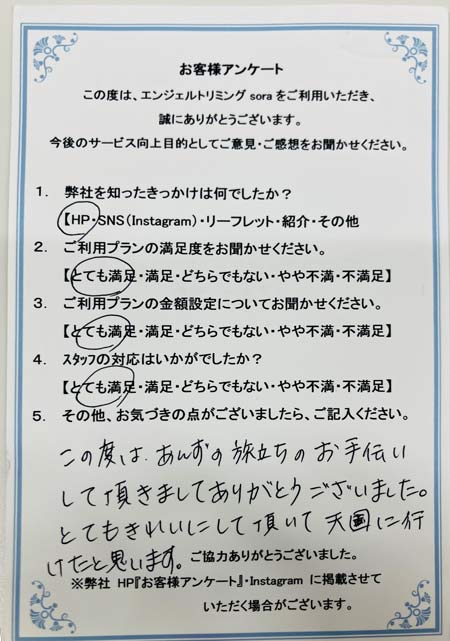 お客様アンケート
この度は、エンジェルトリミング sora をご利用いただき、
誠にありがとうございます。
今後のサービス向上目的としてご意見・ご感想をお聞かせください。
1. 弊社を知ったきっかけは何でしたか？
【HP・SNS（Instagram）・リーフレット・紹介・その他
2. ご利用プランの満足度をお聞かせください。
【とても満足・満足・どちらでもない・やや不満・不満足】
3. ご利用プランの金額設定についてお聞かせください。
【とても満足・満足・どちらでもない・やや不満・不満足】
4. スタッフの対応はいかがでしたか？
【とても満足・満足・どちらでもない・やや不満・不満足】
5. その他、お気づきの点がございましたら、ご記入ください。
この度は、あんずの旅立ちのお手伝い
して頂きましてありがとうございました。
とてもきれいにして頂いて天国に行
けたと思います。ご協力ありがとうございました。
※弊社 HP『お客様アンケート』・Instagram に掲載させて
いただく場合がございます。